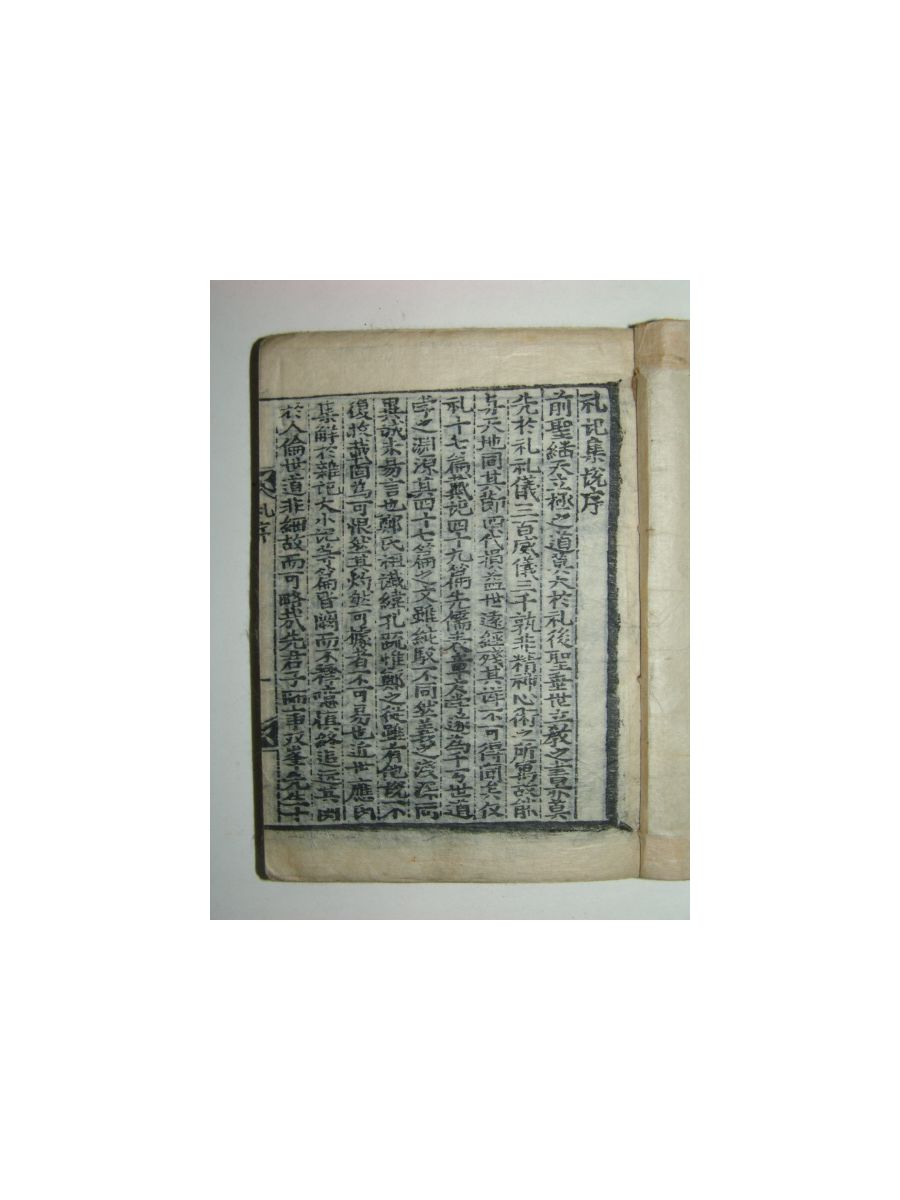 礼記集說序
前聖繼天立極之道莫大於礼後聖垂世立教之書亦莫
先於礼礼儀三百威儀三千孰非精神心術之所寓故能
与天地同其節四代損益世遠經殘其詳不可得聞矣仪
礼十七篇戴記四十九篇先儒表章庸学遂為千万世道
学之淵源其四十七篇之文雖純駁不同然義之浅深同
異誠未易言也鄭氏祖讖緯孔疏惟鄭之從雖有他說不
復收載固為可恨然其灼然可據者不可易也近世應氏
集解於雜記大小記等篇皆闕而不釋噫慎終追远其関
於人倫世道非細故而可略哉先君子師事双峯先生十
礼序
一